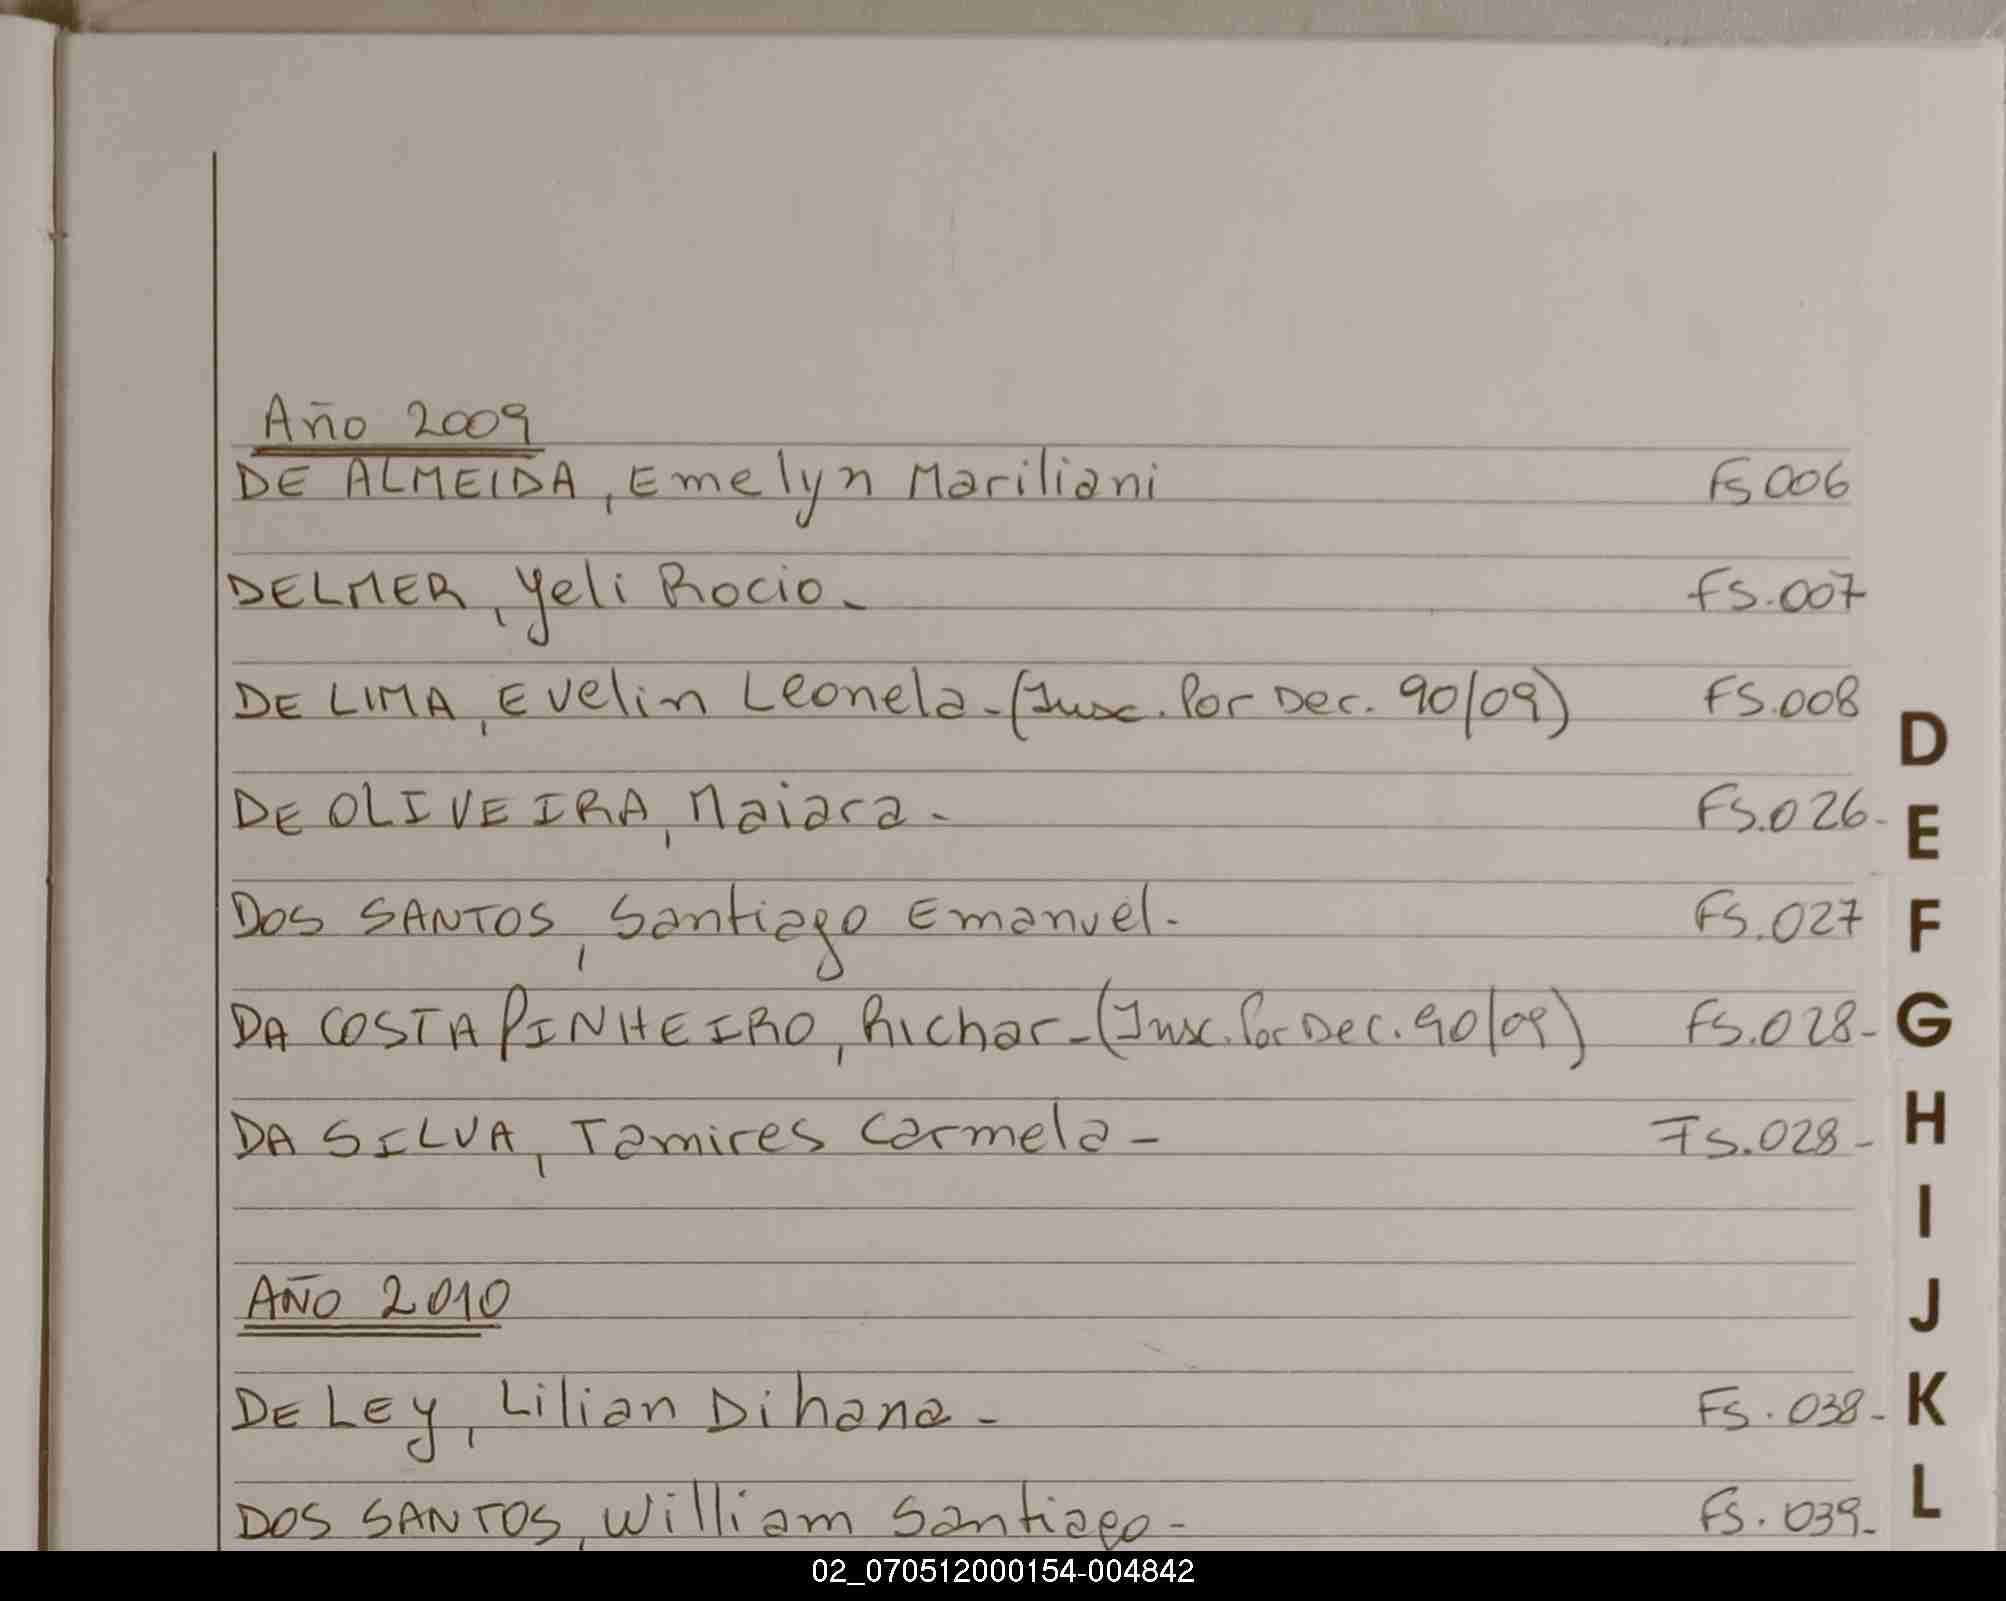 Año 2009
DE ALMEIDA, Emelyn Mariliani FS 006
DELMER, Yeli Rocio. FS.007
DE LIMA, Evelin Leonela-(Insc. Por Dec. 90/09) FS.008
DE OLIVEIRA, Maiara- FS.026-
DOS SANTOS, Santiago Emanuel- FS.027
DA COSTA PINHEIRO, Richar-(Insc. Por Dec. 90/09) FS.028-
DA SILVA, Tamires Carmela- FS.028-
AÑO 2010
DE LEY, Lilian Dihana- FS.038-
DOS SANTOS, William Santiago- FS.039-
D
E
F
G
H
I
J
K
L
02_070512000154-004842